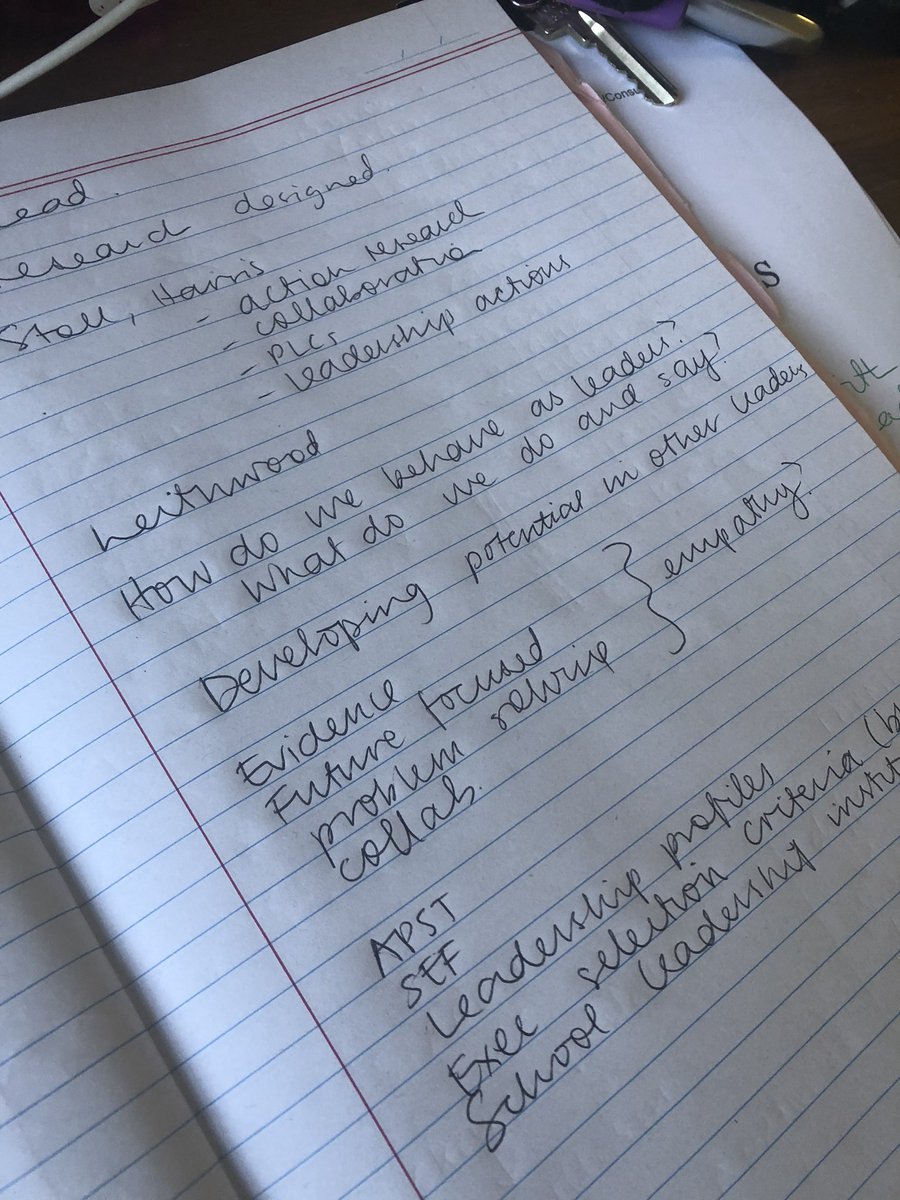 ead.
research designed.
Stoll, Harris
- action research
- collaboration
- PLCs
- leadership actions
Leithwood
How do we behave as leaders?
What do we do and say?
Developing potential in other leaders
Evidence
Future focused
problem solving
collab.
} empathy?
APST
SEF
Leadership profiles
Exec selection criteria (b
School leadership institu
/Consu
S